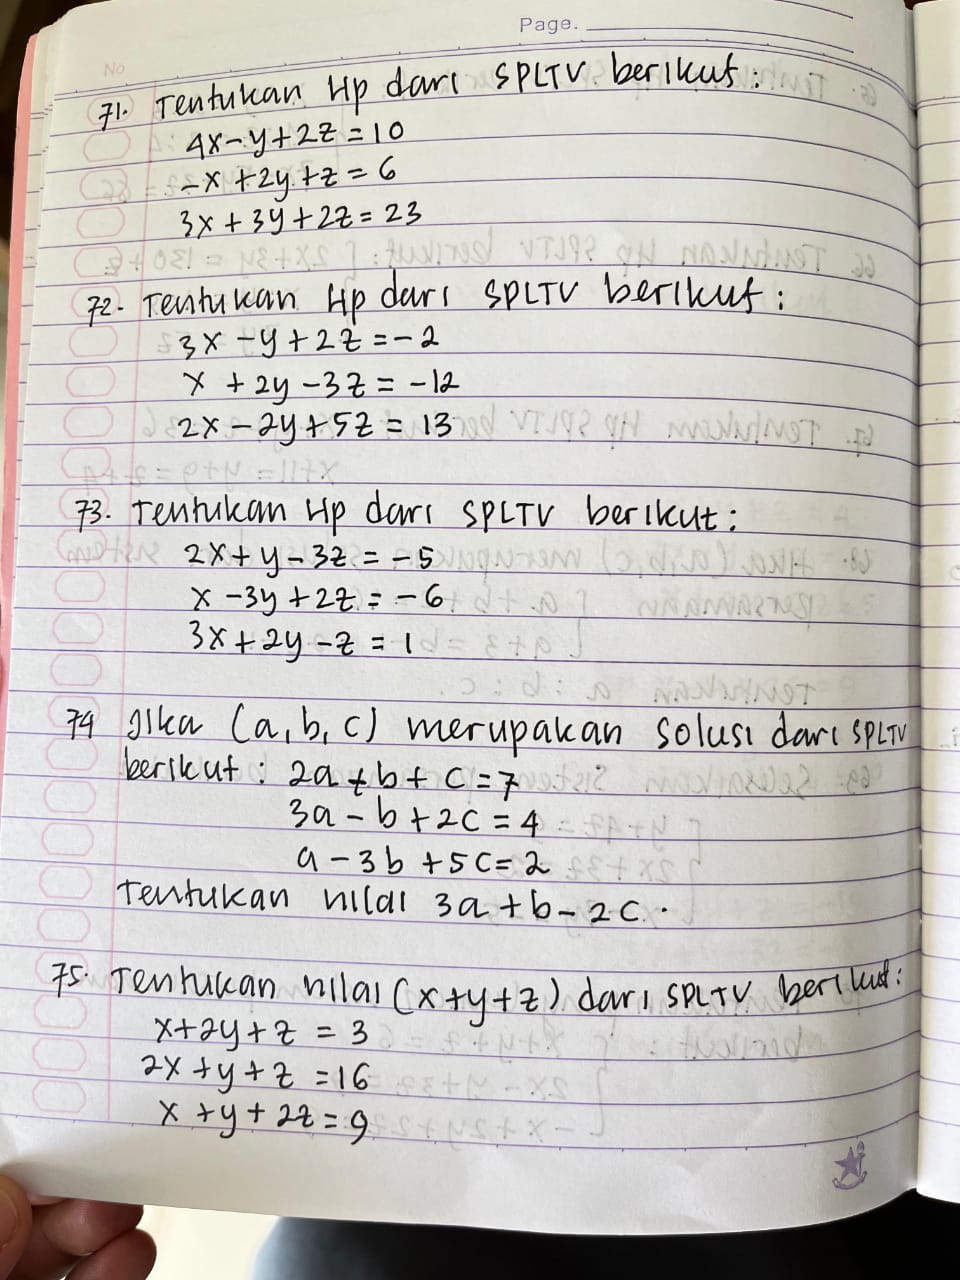 Page.
No
71. Tentukan Hp dari SPLTV berikut :
4x - y + 2z = 10
-x + 2y + z = 6
3x + 3y + 2z = 23
72. Tentukan Hp dari SPLTV berikut :
3x - y + 2z = -2
x + 2y - 3z = -12
2x - 2y + 5z = 13
73. Tentukan Hp dari SPLTV berikut :
2x + y - 3z = -5
x - 3y + 2z = -6
3x + 2y - z = 1
74 Jika (a, b, c) merupakan solusi dari SPLTV
berikut : 2a + b + c = 7
3a - b + 2c = 4
a - 3b + 5c = 2
Tentukan nilai 3a + b - 2c.
75. Tentukan nilai (x+y+z) dari SPLTV berikut :
x + 2y + z = 3
2x + y + z = 16
x + y + 2z = 9